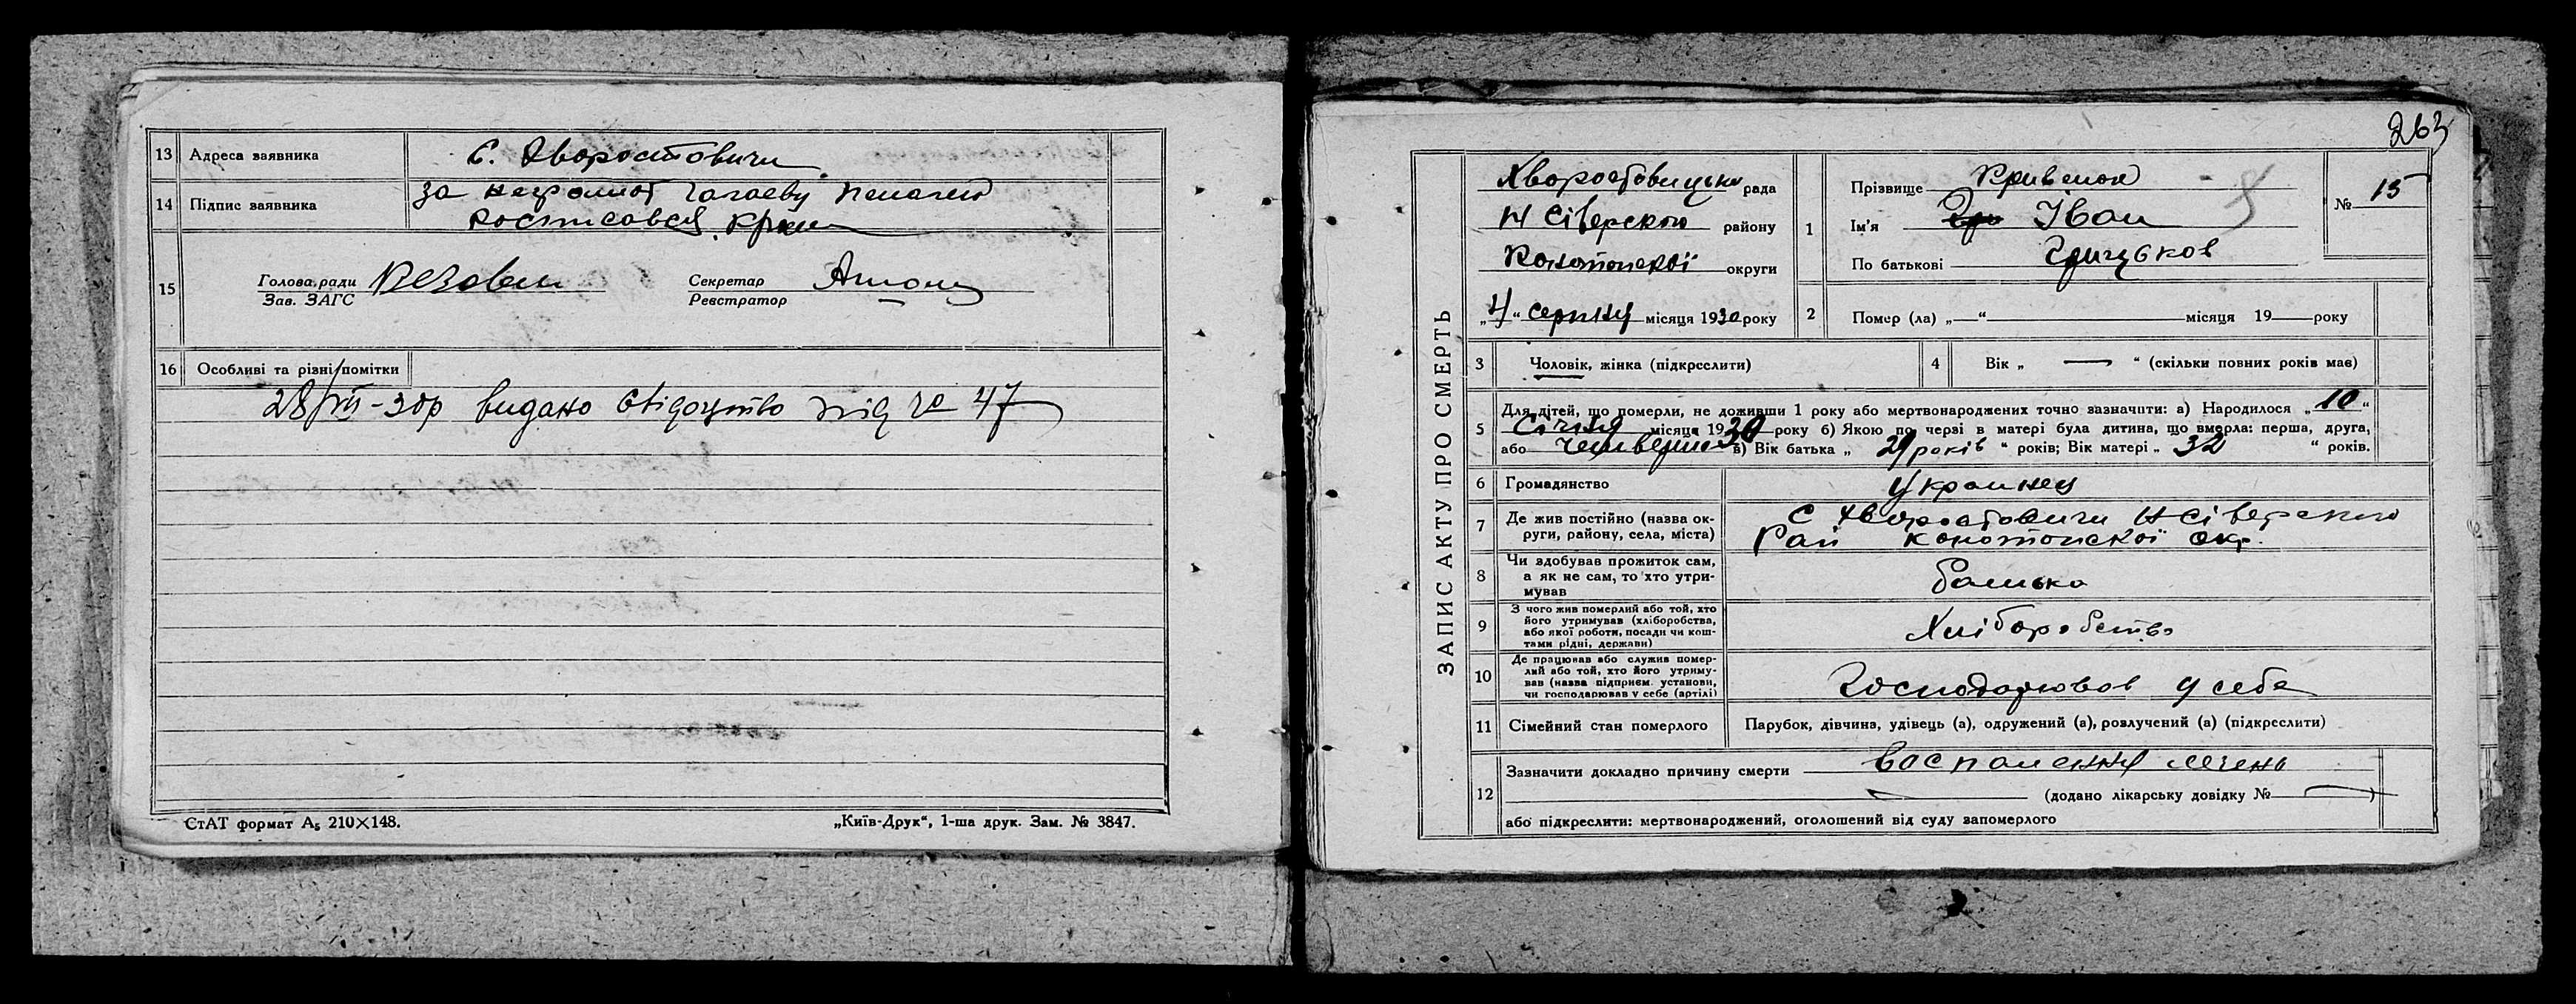 13 Адреса заявника С. Хворостовичи
14 Підпис заявника за неграмот
Росписався
15 Голова ради Секретар
Зав. ЗАГС Реєстратор
16 Особливі та різні помітки
28/VII-30р видано свідоцтво під № 47
СтАТ формат А5 210×148. „Київ-Друк“, 1-ша друк. Зам. № 3847.
263
ЗАПИС АКТУ ПРО СМЕРТЬ
Хворостовицька рада
Н Сіверского району
Конотопскої округи
„4“ серпня місяця 1930 року
1 Прізвище
Ім'я Іван
По батькові
№ 15
2 Помер (ла) „—“ місяця 19 року
3 Чоловік, жінка (підкреслити)
4 Вік „ — “ (скільки повних років має)
5 Для дітей, що померли, не доживши 1 року або мертвонароджених точно зазначити: а) Народилося „10“
Січня місяця 1930 року б) Якою по черзі в матері була дитина, що вмерла: перша, друга,
або четверта в) Вік батька „ 29 років “ років; Вік матері „ 32 “ років.
6 Громадянство Украинец
7 Де жив постійно (назва ок- С Хворостовичи Н Сіверского
руги, району, села, міста) Рай Конотопскої окр.
8 Чи здобував прожиток сам,
а як не сам, то хто утри- батько
мував
9 З чого жив померлий або той, хто
його утримував (хліборобства,
або якої роботи, посади чи кош- Хліборобство
тами рідні, держави)
10 Де працював або служив помер-
лий або той, хто його утриму-
вав (назва підприєм. установи,
чи господарював у себе (артілі) Господарював у себе
11 Сімейний стан померлого Парубок, дівчина, удівець (а), одружений (а), розлучений (а) (підкреслити)
12 Зазначити докладно причину смерти воспаления
(додано лікарську довідку № — )
або підкреслити: мертвонароджений, оголошений від суду запомерлого